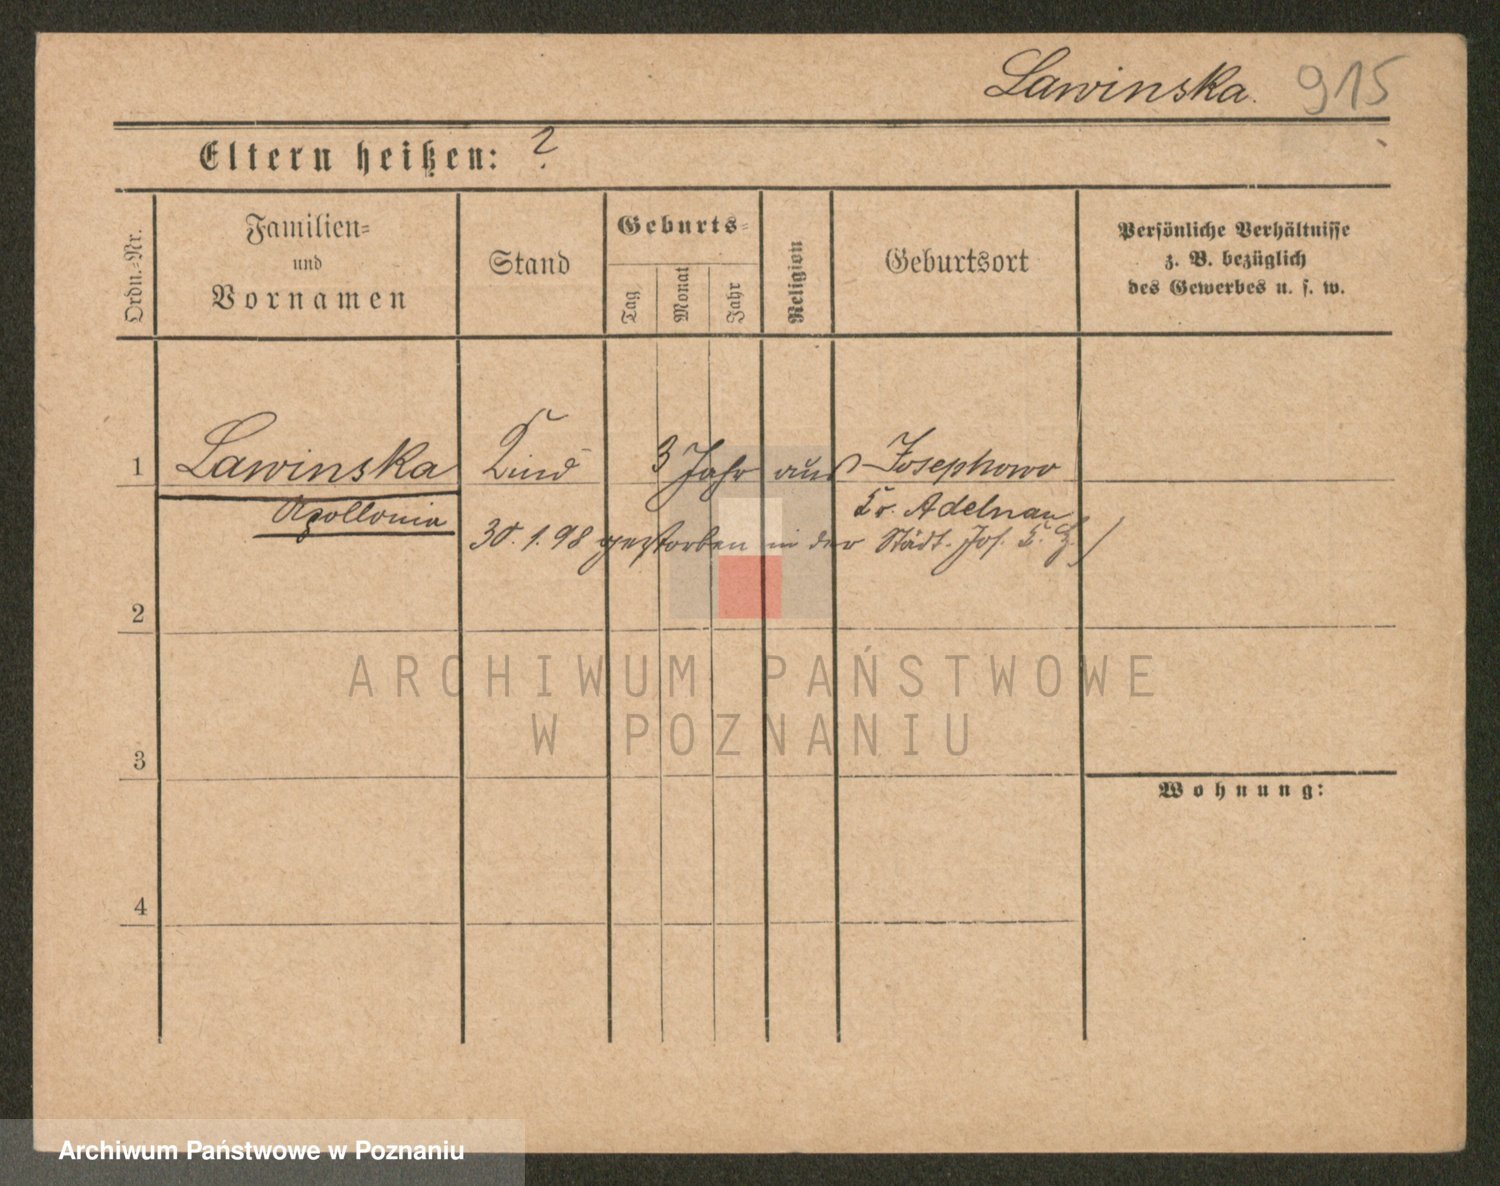 Lawinska. 915
Eltern heißen: ?
Ordn.-Nr.
Familien-
und
Vornamen
Stand
Geburts-
Tag
Monat
Jahr
Religion
Geburtsort
Persönliche Verhältnisse
z. B. bezüglich
des Gewerbes u. s. w.
1 Lawinska Kind 3 Jahr aus Josephowo
Apollonia Kr. Adelnau
30.1.98 gestorben in der Städt. Jos. K. H.
2
ARCHIWUM PAŃSTWOWE
W POZNANIU
3
Wohnung:
4
Archiwum Państwowe w Poznaniu